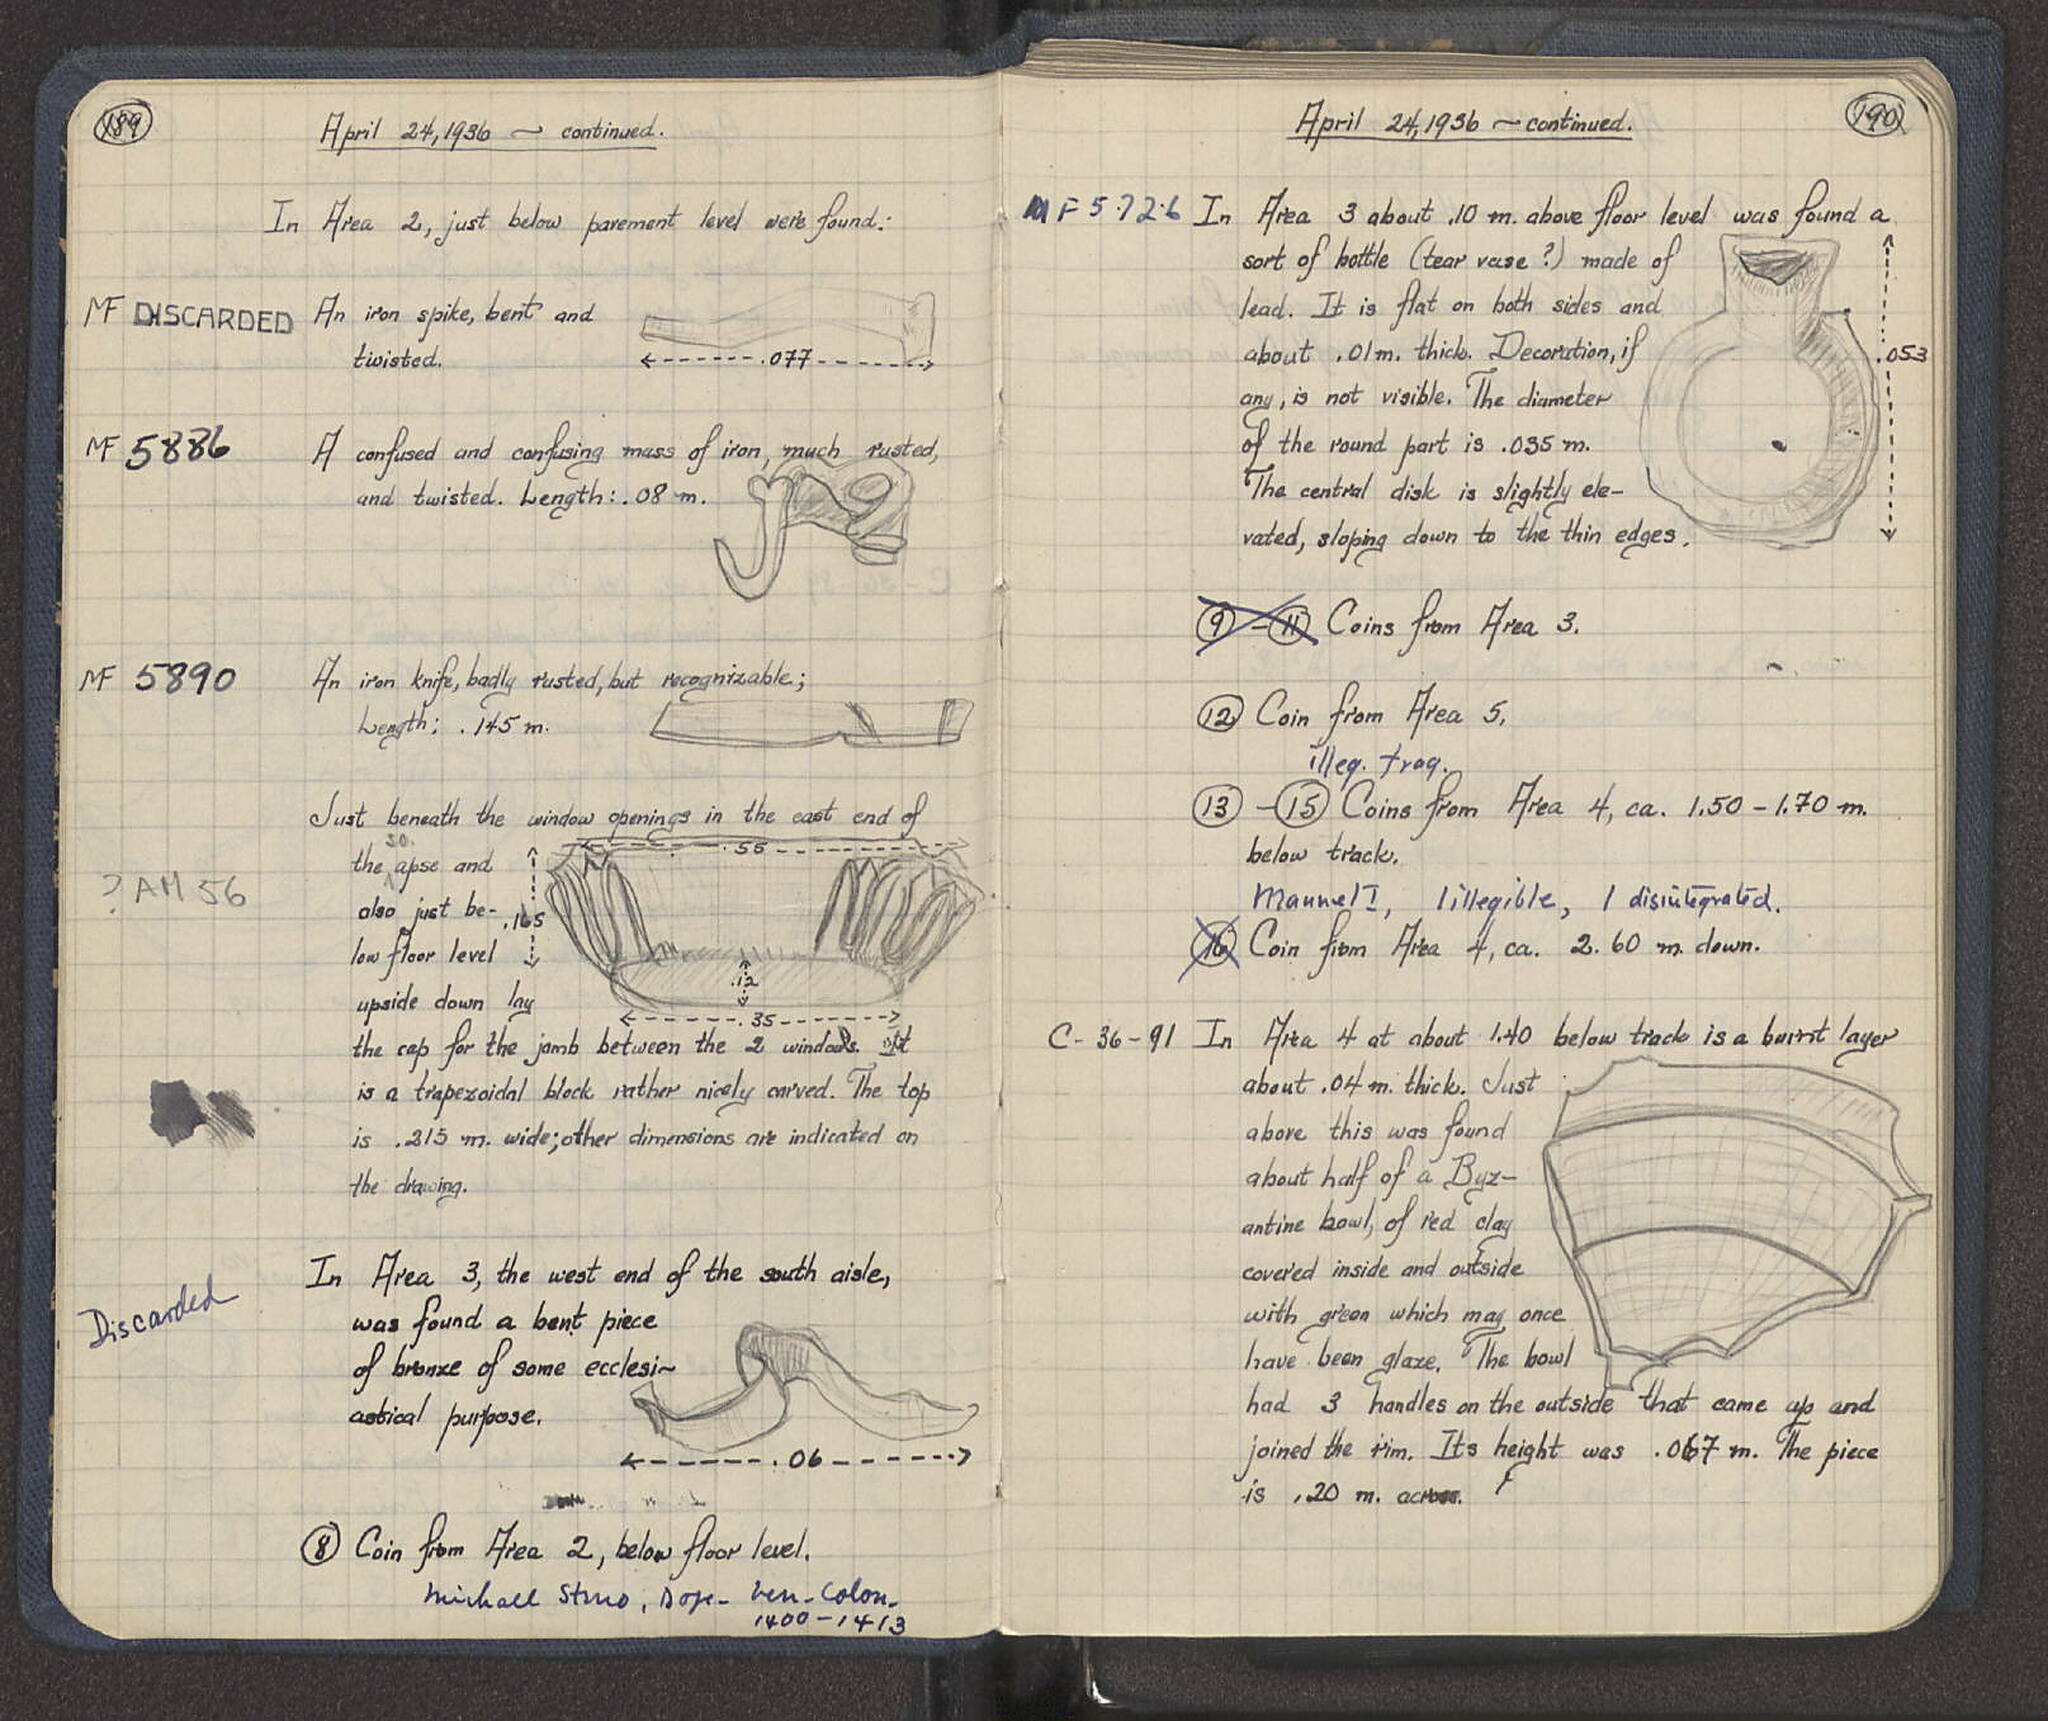 189
April 24, 1936 ~ continued.
In Area 2, just below pavement level were found:
MF DISCARDED An iron spike, bent and
twisted.
.077
MF 5886 A confused and confusing mass of iron, much rusted,
and twisted. Length: .08 m.
MF 5890 An iron knife, badly rusted, but recognizable;
Length: .145 m.
Just beneath the window openings in the east end of
the so. apse and
.55
? AM 56
also just be-
.165
low floor level
.12
upside down lay
.35
the cap for the jamb between the 2 windows. It
is a trapezoidal block rather nicely carved. The top
is .215 m. wide; other dimensions are indicated on
the drawing.
In Area 3, the west end of the south aisle,
Discarded
was found a bent piece
of bronze of some ecclesi-
astical purpose.
.06
8 Coin from Area 2, below floor level.
Michael Steno, Doge - Ven-Colon.
1400-1413
190
April 24, 1936 ~ continued.
MF 5726 In Area 3 about .10 m. above floor level was found a
sort of bottle (tear vase?) made of
lead. It is flat on both sides and
about .01 m. thick. Decoration, if
.053
any, is not visible. The diameter
of the round part is .035 m.
The central disk is slightly ele-
vated, sloping down to the thin edges.
9 - 11 Coins from Area 3.
12 Coin from Area 5.
illeg. frag.
13 - 15 Coins from Area 4, ca. 1.50 - 1.70 m.
below track.
Manuel I, 1 illegible, 1 disintegrated.
16 Coin from Area 4, ca. 2.60 m. down.
C-36-91 In Area 4 at about 1.40 below track is a burnt layer
about .04 m. thick. Just
above this was found
about half of a Byz-
antine bowl, of red clay
covered inside and outside
with green which may once
have been glaze. The bowl
had 3 handles on the outside that came up and
joined the rim. Its height was .067 m. The piece
is .20 m. across.